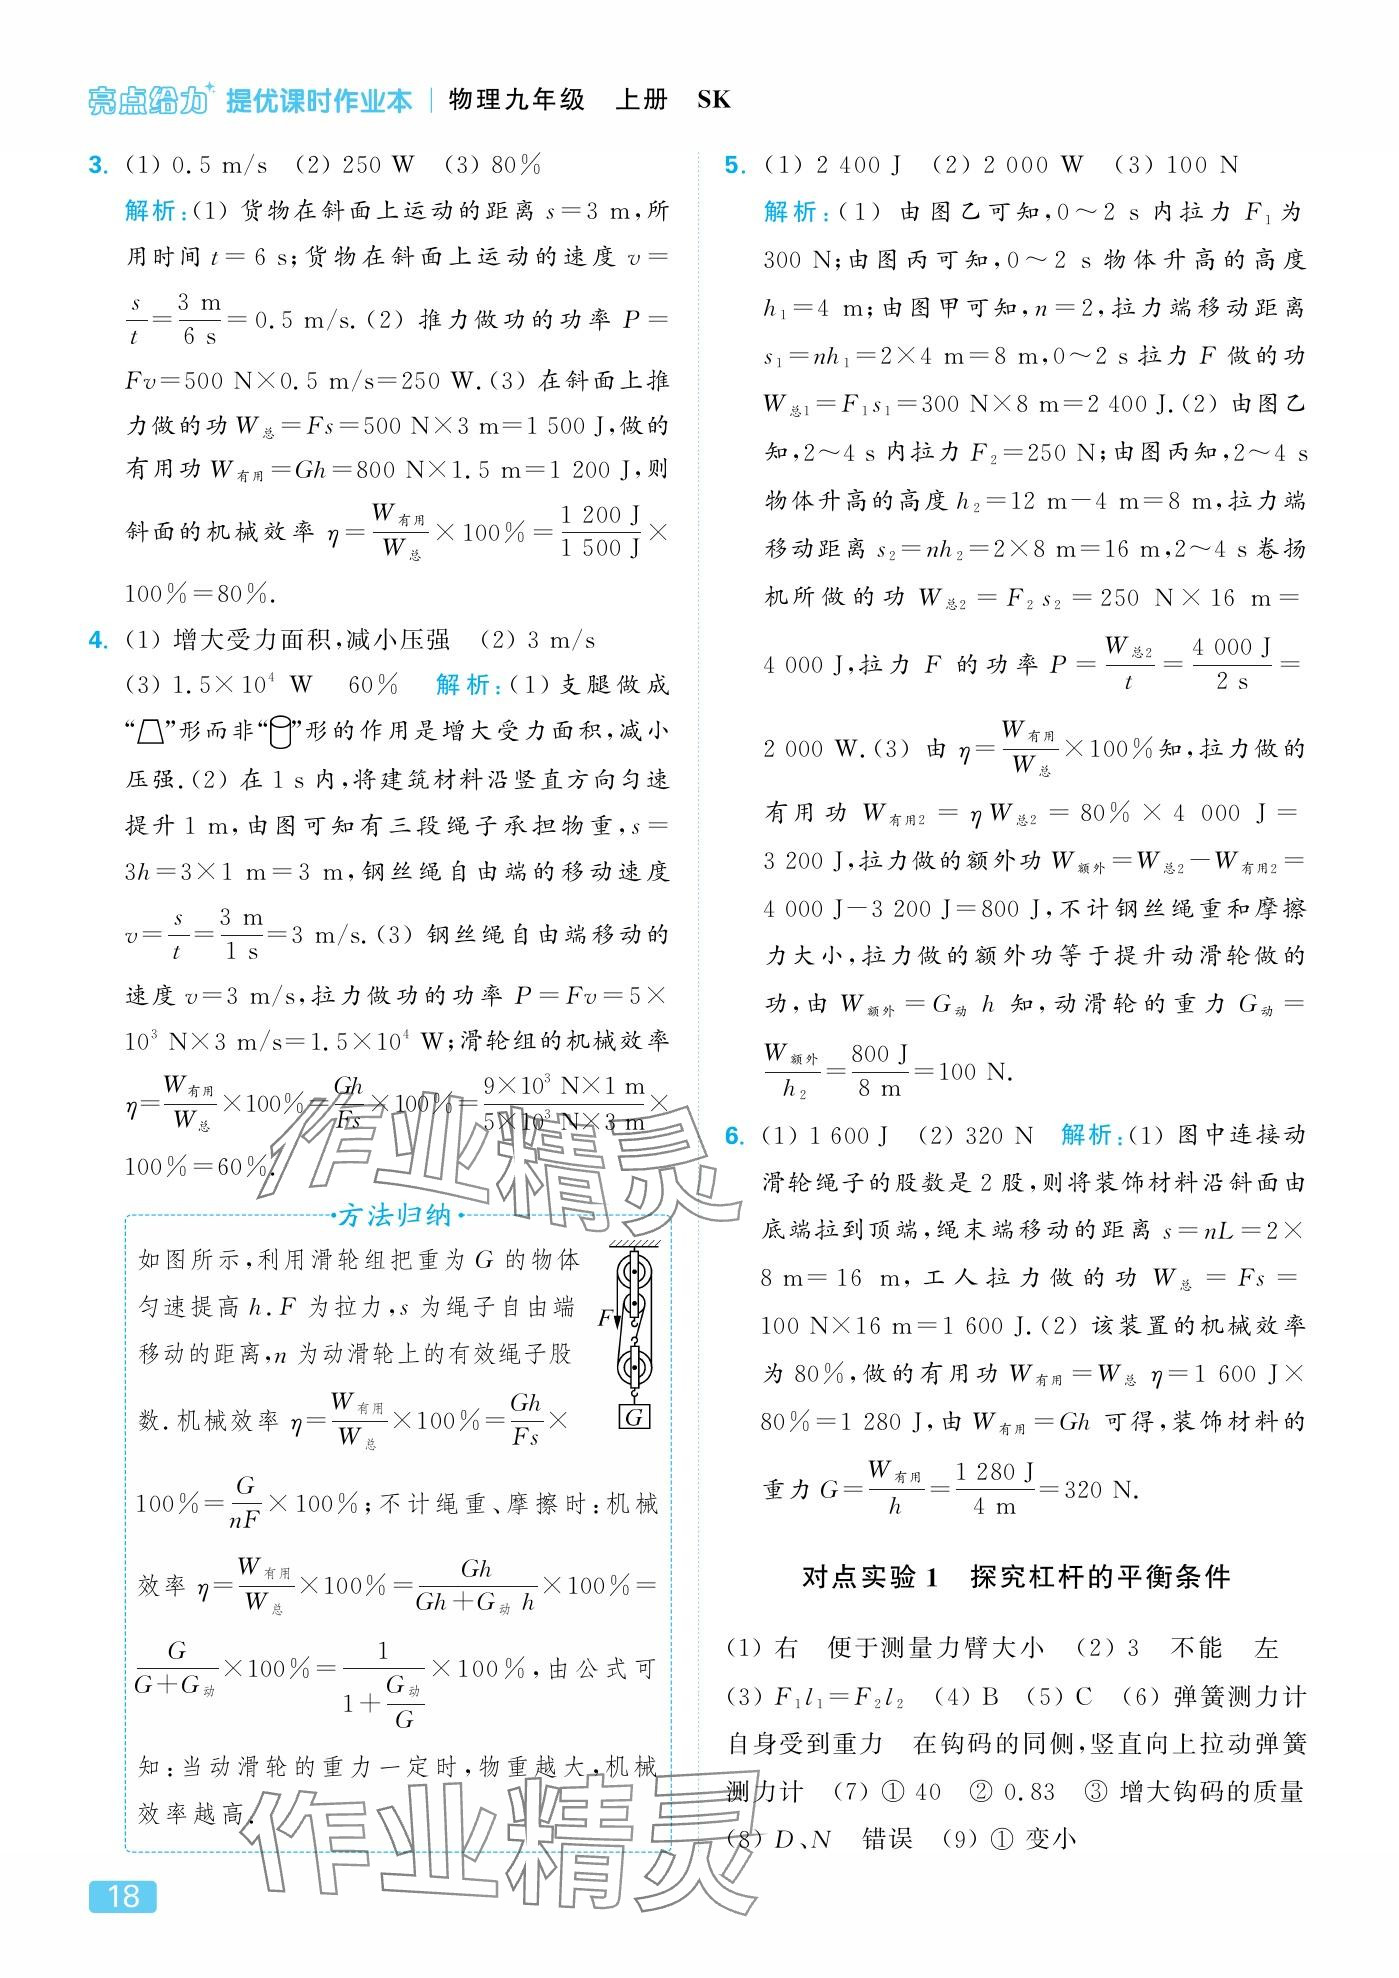 亮点给力 提优课时作业本 物理九年级 上册 SK
3. (1) 0.5 m/s (2) 250 W (3) 80%
解析:(1) 货物在斜面上运动的距离 s=3 m,所
用时间 t=6 s;货物在斜面上运动的速度 v=
s/t=3 m/6 s=0.5 m/s.(2) 推力做功的功率 P=
Fv=500 N×0.5 m/s=250 W.(3) 在斜面上推
力做的功W总=Fs=500 N×3 m=1 500 J,做的
有用功W有用=Gh=800 N×1.5 m=1 200 J,则
斜面的机械效率 η=W有用/W总×100%=1 200 J/1 500 J×
100%=80%.
4. (1) 增大受力面积,减小压强 (2) 3 m/s
(3) 1.5×10⁴ W 60% 解析:(1)支腿做成
“ ”形而非“ ”形的作用是增大受力面积,减小
压强.(2) 在 1 s 内,将建筑材料沿竖直方向匀速
提升 1 m,由图可知有三段绳子承担物重,s=
3h=3×1 m=3 m,钢丝绳自由端的移动速度
v=s/t=3 m/1 s=3 m/s.(3) 钢丝绳自由端移动的
速度 v=3 m/s,拉力做功的功率 P=Fv=5×
10³ N×3 m/s=1.5×10⁴ W;滑轮组的机械效率
η=W有用/W总×100%=Gh/Fs×100%=9×10³ N×1 m/5×10³ N×3 m×
100%=60%.
方法归纳
如图所示,利用滑轮组把重为 G 的物体
匀速提高 h.F 为拉力,s 为绳子自由端
移动的距离,n 为动滑轮上的有效绳子股
数.机械效率 η=W有用/W总×100%=Gh/Fs×
100%=G/nF×100%;不计绳重、摩擦时:机械
效率 η=W有用/W总×100%=Gh/(Gh+G动 h)×100%=
G/(G+G动)×100%=1/(1+G动/G)×100%,由公式可
知:当动滑轮的重力一定时,物重越大,机械
效率越高.
F
G
18
5. (1) 2 400 J (2) 2 000 W (3) 100 N
解析:(1) 由图乙可知,0～2 s 内拉力 F₁为
300 N;由图丙可知,0～2 s 物体升高的高度
h₁=4 m;由图甲可知,n=2,拉力端移动距离
s₁=nh₁=2×4 m=8 m,0～2 s拉力 F 做的功
W总1=F₁s₁=300 N×8 m=2 400 J.(2) 由图乙
知,2～4 s内拉力 F₂=250 N;由图丙知,2～4 s
物体升高的高度 h₂=12 m-4 m=8 m,拉力端
移动距离 s₂=nh₂=2×8 m=16 m,2～4 s卷扬
机所做的功 W总2=F₂s₂=250 N×16 m=
4 000 J,拉力 F 的功率 P=W总2/t=4 000 J/2 s=
2 000 W.(3) 由 η=W有用/W总×100%知,拉力做的
有用功 W有用2=ηW总2=80%×4 000 J=
3 200 J,拉力做的额外功W额外=W总2-W有用2=
4 000 J-3 200 J=800 J,不计钢丝绳重和摩擦
力大小,拉力做的额外功等于提升动滑轮做的
功,由 W额外=G动 h 知,动滑轮的重力 G动=
W额外/h₂=800 J/8 m=100 N.
6. (1) 1 600 J (2) 320 N 解析:(1) 图中连接动
滑轮绳子的股数是 2 股,则将装饰材料沿斜面由
底端拉到顶端,绳末端移动的距离 s=nL=2×
8 m=16 m,工人拉力做的功 W总=Fs=
100 N×16 m=1 600 J.(2) 该装置的机械效率
为 80%,做的有用功 W有用=W总 η=1 600 J×
80%=1 280 J,由 W有用=Gh 可得,装饰材料的
重力 G=W有用/h=1 280 J/4 m=320 N.
对点实验 1 探究杠杆的平衡条件
(1) 右 便于测量力臂大小 (2) 3 不能 左
(3) F₁l₁=F₂l₂ (4) B (5) C (6) 弹簧测力计
自身受到重力 在钩码的同侧,竖直向上拉动弹簧
测力计 (7) ① 40 ② 0.83 ③ 增大钩码的质量
(8) D、N 错误 (9) ① 变小
作业精灵
作业精灵